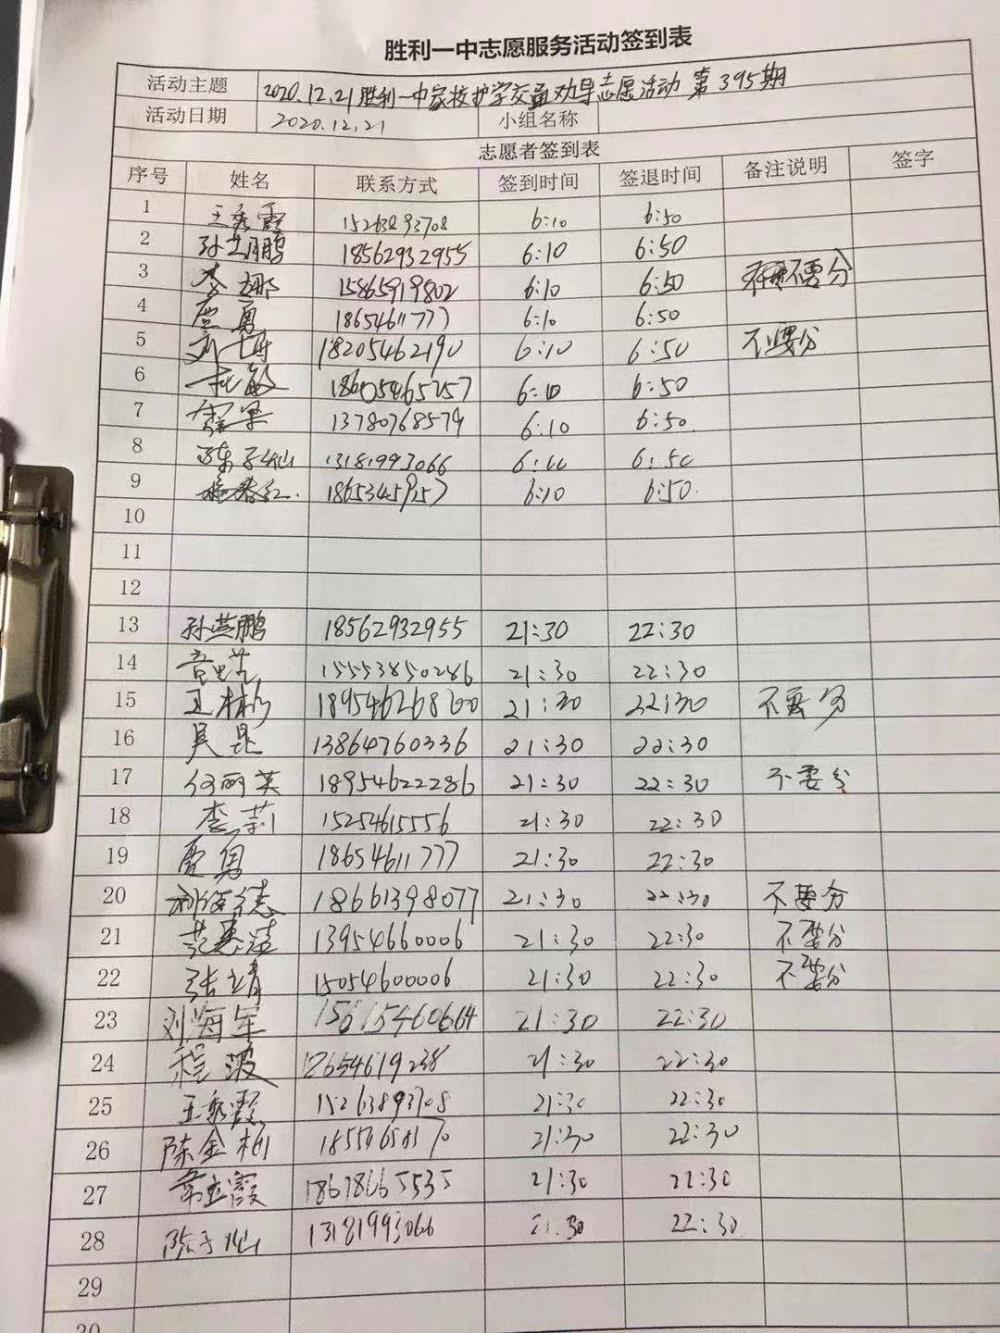 胜利一中志愿服务活动签到表
活动主题 2020.12.21胜利一中家校护学交通劝导志愿活动 第395期
活动日期 2020.12.21 小组名称
志愿者签到表
序号 姓名 联系方式 签到时间 签退时间 备注说明 签字
1 王秀霞 15263893708 6:10 6:50
2 孙芸鹏 18562932955 6:10 6:50
3 李娜 15865919802 6:10 6:50 不要分
4 勇 18654611777 6:10 6:50
5 刘 18205462190 6:10 6:50 不要分
6 敏 18605465757 6:10 6:50
7 13780768579 6:10 6:50
8 陈子仙 13181993066 6:10 6:50
9 6:10 6:50
10
11
12
13 孙芸鹏 18562932955 21:30 22:30
14 15553850286 21:30 22:30
15 王林 18954626860 21:30 22:30 不要分
16 吴昆 13864760336 21:30 22:30
17 何丽英 18954622286 21:30 22:30 不要分
18 李莉 15254615556 21:30 22:30
19 勇 18654611777 21:30 22:30
20 18661398077 21:30 22:30 不要分
21 范 13954660006 21:30 22:30 不要分
22 张靖 15054600006 21:30 22:30 不要分
23 刘海军 15615460664 21:30 22:30
24 程波 18654619238 21:30 22:30
25 王秀霞 15263893708 21:30 22:30
26 陈金 21:30 22:30
27 霞 18678665535 21:30 22:30
28 陈子仙 13181993066 21:30 22:30
29
30